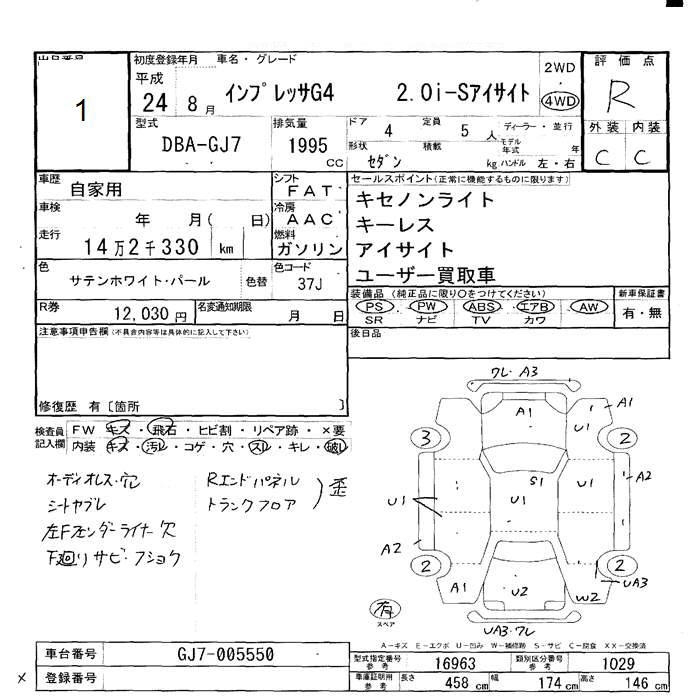 出品番号
1
初度登録年月
車名・グレード
平成
24 8月
インプレッサG4 2.0i-Sアイサイト
2WD
4WD
評価点
R
型式
DBA-GJ7
排気量
1995
CC
ドア 4
定員 5 人
ディーラー・並行
形状 セダン
積載 kg
モデル年式 年
ハンドル 左・右
外装 内装
C C
車歴
自家用
シフト
FAT
車検
年 月( 日)
冷房
AAC
走行
14万2千330 km
燃料
ガソリン
色
サテンホワイト・パール
色替
色コード
37J
R券
12,030円
名変通知期限
月 日
セールスポイント(正常に機能するものに限ります)
キセノンライト
キーレス
アイサイト
ユーザー買取車
装備品 (純正品に限り○をつけてください)
PS・PW・ABS・エアB・AW
SR ナビ TV カワ
新車保証書
有・無
注意事項申告欄(不具合内容等は具体的に記入して下さい)
後日品
修復歴 有〔箇所 〕
検査員記入欄
FW キズ・飛石・ヒビ割・リペア跡・×要
内装 キズ・汚レ・コゲ・穴・スレ・キレ・破レ
オーディオレス・穴
シートヤブレ
左Fフェンダーライナー欠
下廻りサビ・フショク
Rエンドパネル
トランクフロア
)歪
ワレ・A3
A1
A1
U1
3
2
A2
S1
U1
U1
U1
A2
2
2
A1
U2
W2
UA3
有
スペア
UA3・ワレ
A-キズ E-エクボ U-凹み W-補修跡 S-サビ C-腐食 XX-交換済
車台番号
GJ7-005550
×
登録番号
型式指定番号
参考
16963
類別区分番号
参考
1029
車庫証明用
参考
長さ 458 cm
幅 174 cm
高さ 146 cm